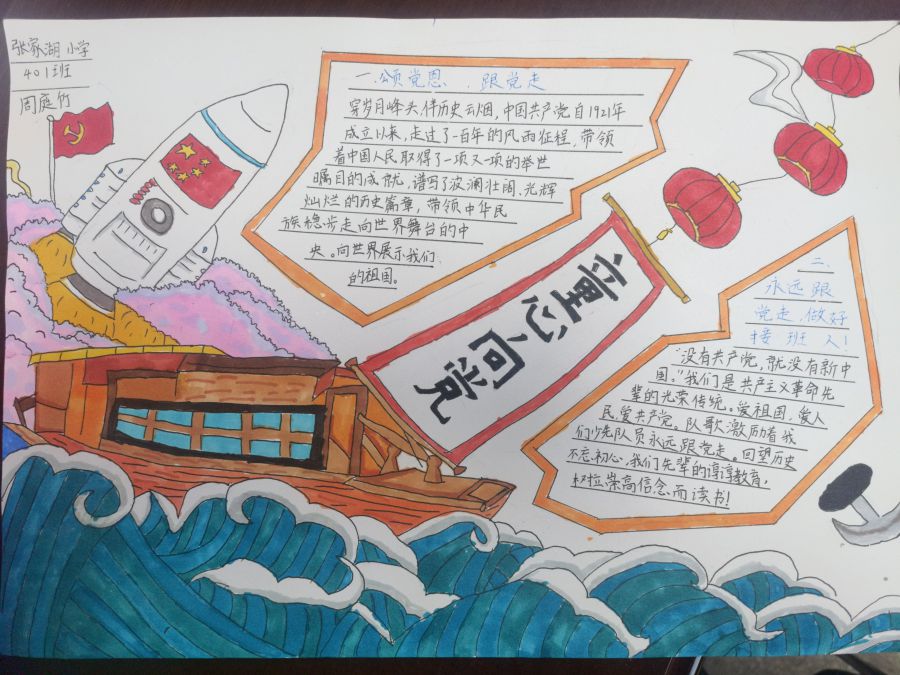 张家湖小学
401班
周庭竹
一.颂党恩、跟党走
穿岁月峰头,伴历史云烟,中国共产党自1921年
成立以来,走过了一百年的风雨征程,带领
着中国人民取得了一项又一项的举世
瞩目的成就,谱写了波澜壮阔、光辉
灿烂的历史篇章,带领中华民
族稳步走向世界舞台的中
央。向世界展示我们
的祖国。
童心向党
二、
永远跟
党走,做好
接班人!
"没有共产党,就没有新中
国。"我们是共产主义革命先
辈的光荣传统。爱祖国,爱人
民,爱共产党。队歌激励着我
们少先队员永远跟党走。回望历史
不忘初心,我们先辈的谆谆教育,
树立崇高信念而读书!